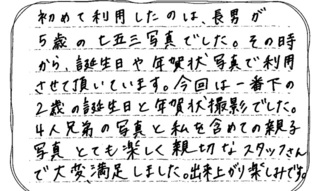 初めて利用したのは、長男が
5歳の七五三写真でした。その時
から、誕生日や年賀状写真で利用
させて頂いています。今回は一番下の
2歳の誕生日と年賀状撮影でした。
4人兄弟の写真と私を含めての親子
写真とても楽しく親切なスタッフさん
で大変満足しました。出来上がり楽しみです。